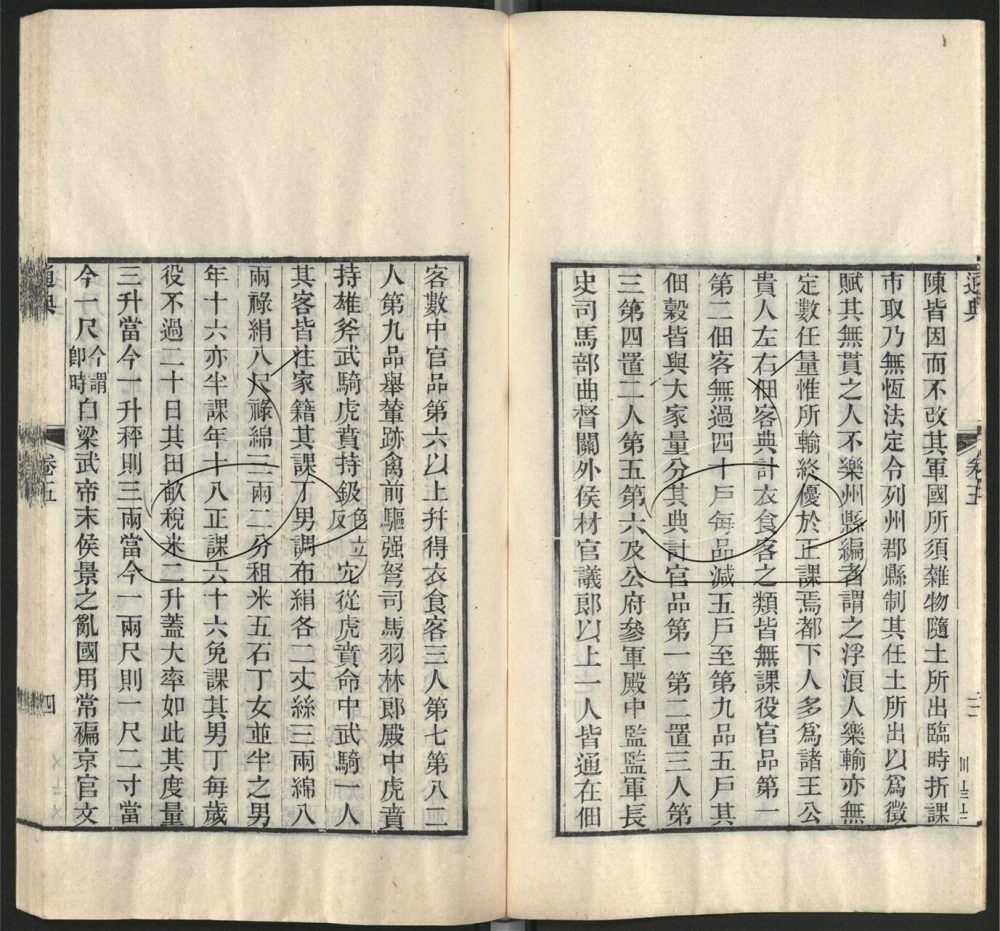 陳皆因而不改其軍國所須雜物隨土所出臨時折課
市取乃無恆法定令列州郡縣制其任土所出以爲徵
賦其無貫之人不樂州縣編者謂之浮浪人樂輸亦無
定數任量惟所輸終優於正課焉都下人多爲諸王公
貴人左右佃客典計衣食客之類皆無課役官品第一
第二佃客無過四十戶每品減五戶至第九品五戶其
佃穀皆與大家量分其典計官品第一第二置三人第
三第四置二人第五第六及公府參軍殿中監監軍長
史司馬部曲督關外侯材官議郎以上一人皆通在佃
客數中官品第六以上幷得衣食客三人第七第八二
人第九品舉輦跡禽前驅强弩司馬羽林郎殿中虎賁
持雄斧武騎虎賁持鈒色立反宂從虎賁命中武騎一人
其客皆注家籍其課丁男調布絹各二丈絲三兩綿八
兩祿絹八尺祿綿三兩二分租米五石丁女並半之男
年十六亦半課年十八正課六十六免課其男丁每歲
役不過二十日其田畝稅米二升蓋大率如此其度量
三升當今一升秤則三兩當今一兩尺則一尺二寸當
今一尺今謂卽時自梁武帝末侯景之亂國用常褊京官文
通典
卷五
四